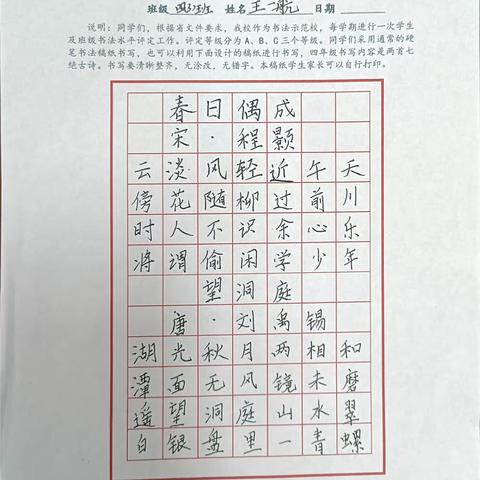 班级 班 姓名 王 航 日期
说明：同学们，根据省文件要求，我校作为书法示范校，每学期进行一次学生
及班级书法水平评定工作。评定等级分为A、B、C三个等级。同学们采用通常的硬
笔书法稿纸书写，也可以利用下面设计的稿纸进行书写，四年级书写内容是两首七
绝古诗。书写要清晰整齐，无涂改，无错字。本稿纸学生家长可以自行打印。
春日偶成
宋·程颢
云淡风轻近午天
傍花随柳过前川
时人不识余心乐
将谓偷闲学少年
望洞庭
唐·刘禹锡
湖光秋月两相和
潭面无风镜未磨
遥望洞庭山水翠
白银盘里一青螺